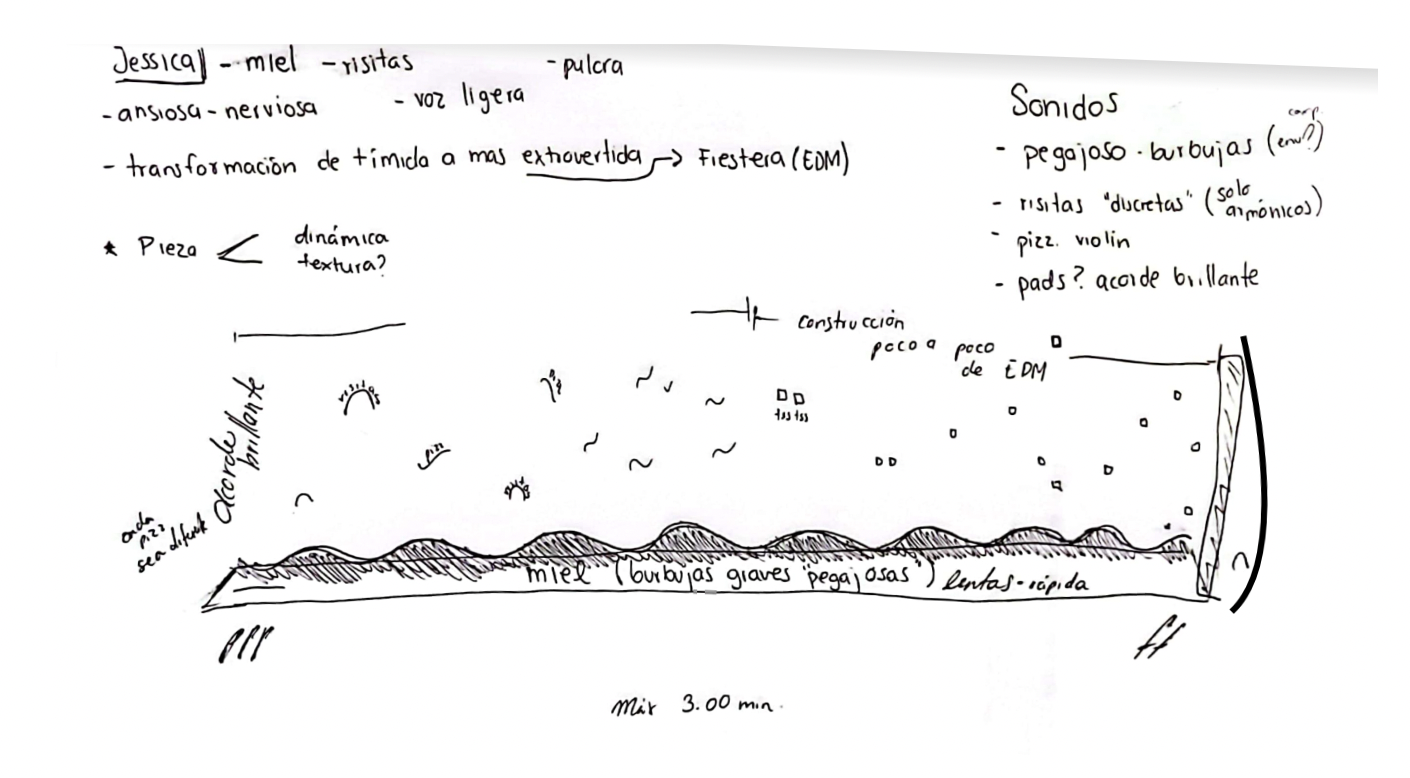 Jessica - miel - risitas - pulcra
- ansiosa - nerviosa - voz ligera
- transformación de tímida a mas extrovertida → Fiestera (EDM)
* Pieza < dinámica
textura?
Sonidos
- pegajoso - burbujas (env?)
corp.
- risitas "ducretas" (solo armónicos)
- pizz. violín
- pads? acorde brillante
construcción
poco a poco
de EDM
acorde brillante
risitas
pizz
tss tss
cada
pizz
sea diferente
miel (burbujas graves "pegajosas") lentas - rápida
ppp
ff
Máx 3.00 min.